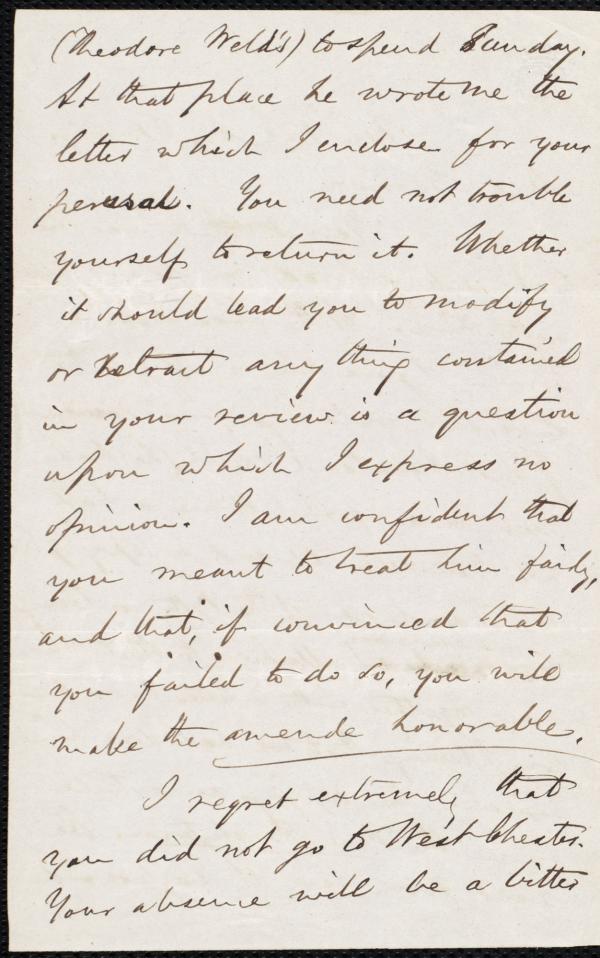 (Theodore Weld's) to spend Sunday.
At that place he wrote me the
letter which I enclose for your
perusal. You need not trouble
yourself to return it. Whether
it should lead you to modify
or retract any thing contained
in your review is a question
upon which I express no
opinion. I am confident that
you meant to treat him fairly,
and that, if convinced that
you failed to do so, you will
make the amende honorable.
I regret extremely that
you did not go to West Chester.
Your absence will be a bitter